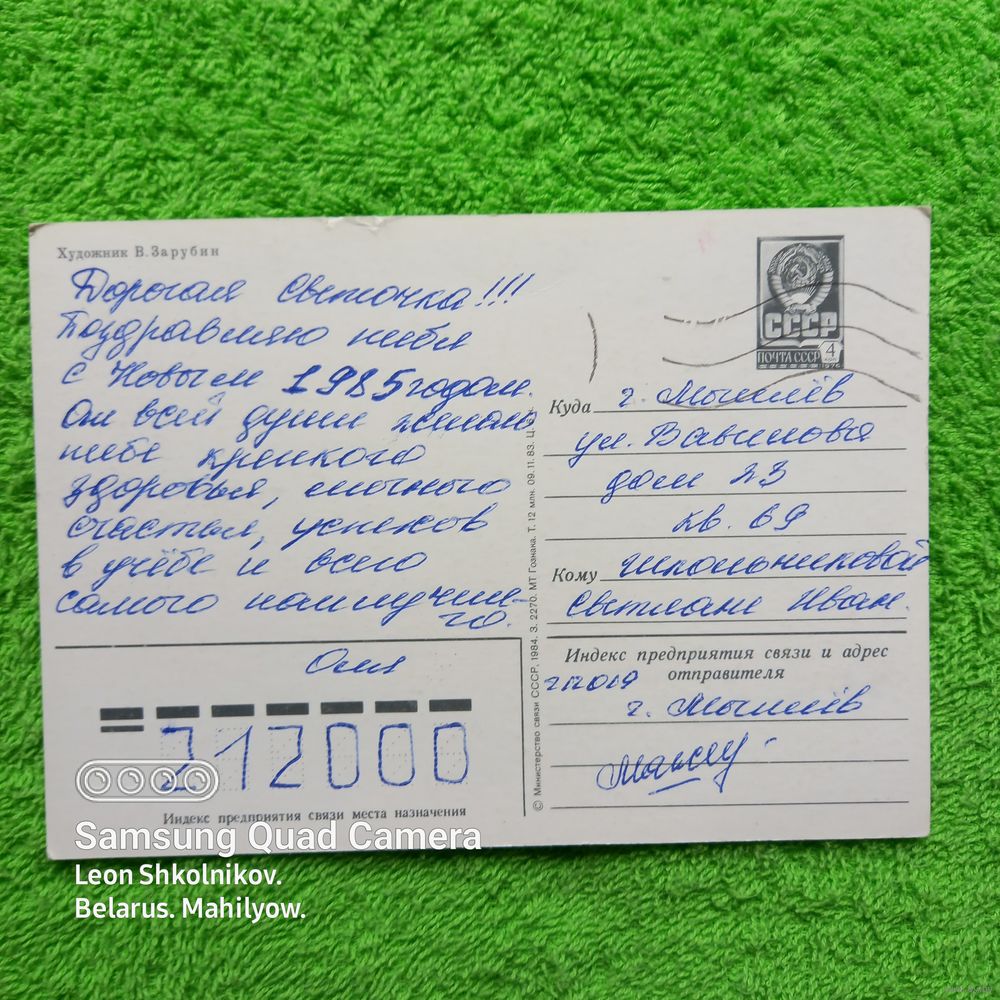 Художник В.Зарубин
Дорогая Светочка!!!
Поздравляю тебя
с Новым 1985 годом.
От всей души желаю
тебе крепкого
здоровья, личного
счастья, успехов
в учёбе и всего
самого наилучше-
го.
Оля
212000
Индекс предприятия связи места назначения
© Министерство связи СССР, 1984. З. 2270. МТ Гознака. Т. 12 млн. 09.11.83. Ц.
СССР
ПОЧТА СССР 4
1976
Куда г. Могилёв
ул. Вавилова
дом 23
кв. 69
Кому Школьниковой
Светлане Иван.
Индекс предприятия связи и адрес
отправителя
212019
г. Могилёв
Samsung Quad Camera
Leon Shkolnikov.
Belarus. Mahilyow.